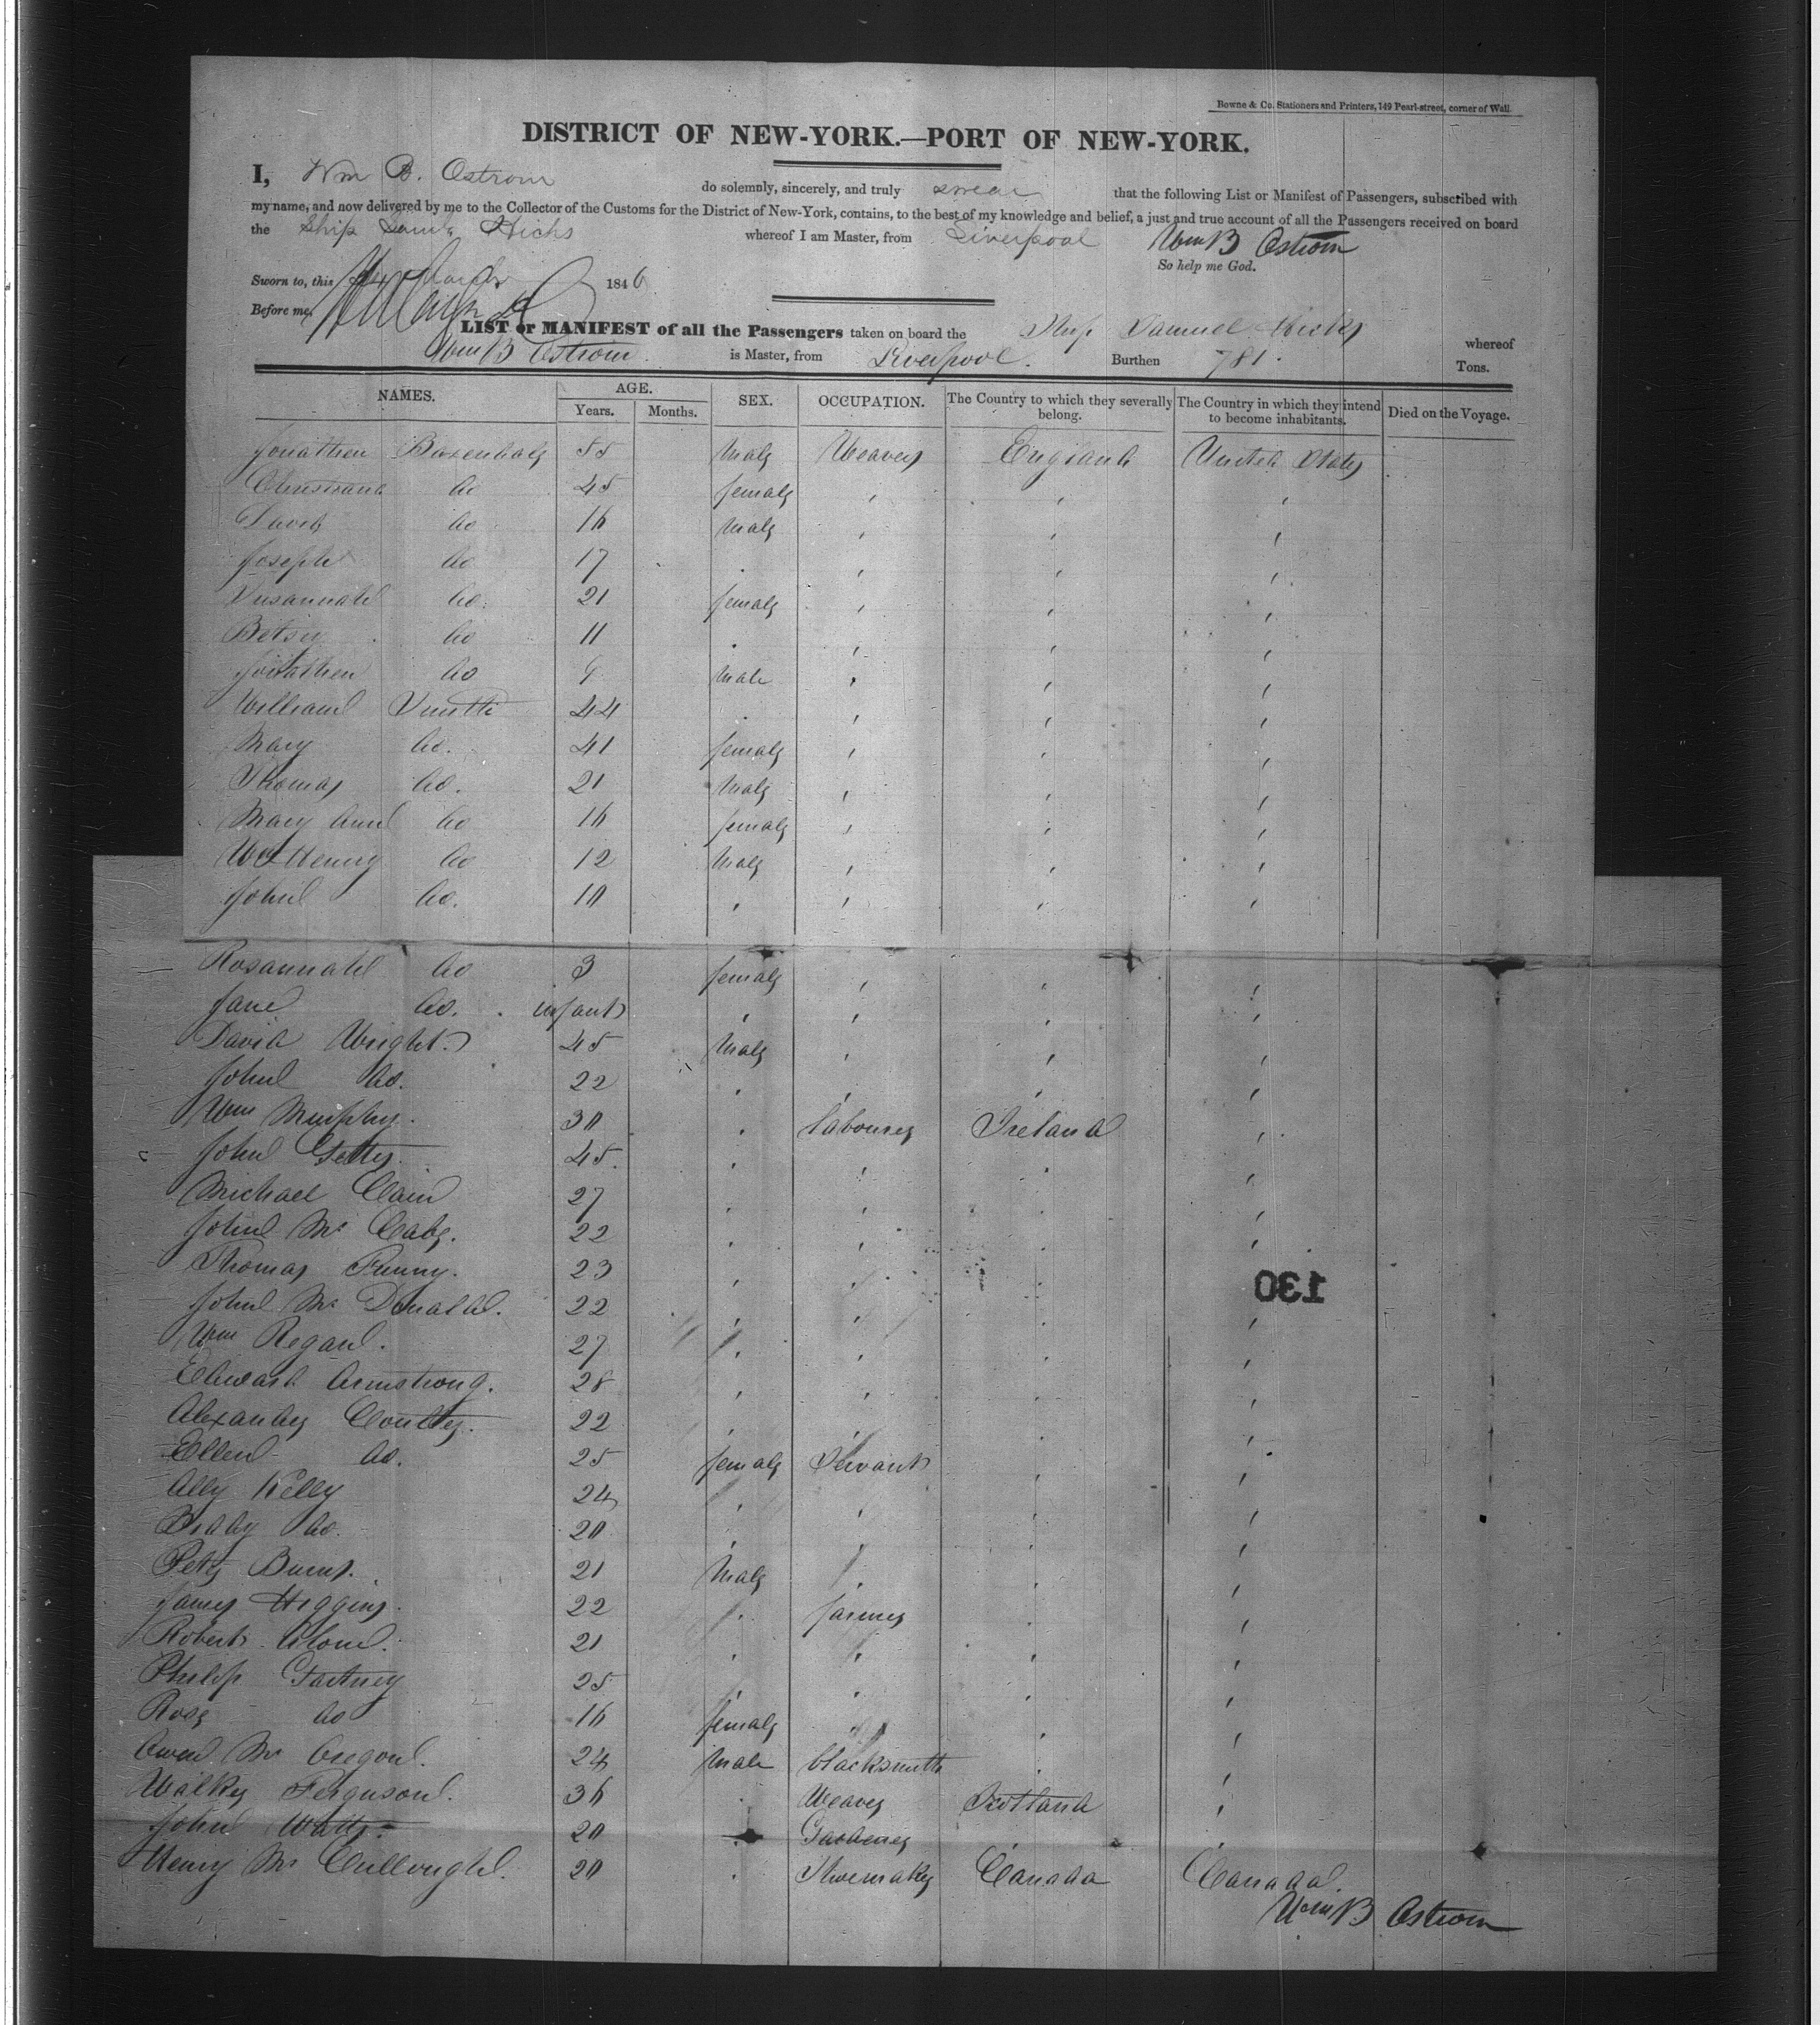 Bowne & Co. Stationers and Printers, 149 Pearl-street, corner of Wall.
DISTRICT OF NEW-YORK.—PORT OF NEW-YORK.
I, Wm B. Ostrom do solemnly, sincerely, and truly swear that the following List or Manifest of Passengers, subscribed with
my name, and now delivered by me to the Collector of the Customs for the District of New-York, contains, to the best of my knowledge and belief, a just and true account of all the Passengers received on board
the Ship Saml Hicks whereof I am Master, from Liverpool Wm B Ostrom
So help me God.
Sworn to, this March 1846
Before me,
LIST or MANIFEST of all the Passengers taken on board the Ship Samuel Hicks whereof
Wm B Ostrom is Master, from Liverpool. Burthen 781. Tons.
NAMES. AGE. SEX. OCCUPATION. The Country to which they severally belong. The Country in which they intend to become inhabitants. Died on the Voyage.
Years. Months.
Jonathan 55 Male Weaver England United States
Do 45 female
David Do 16 Male
Joseph Do 17
Susannah Do 21 female
Betsy Do 11
Jonathan Do 9 Male
William Smith 44
Mary Do. 41 female
Thomas Do. 21 Male
Mary Ann Do 16 female
Wm Henry Do 12 Male
John Do. 10
Rosannah Do 3 female
Jane Do. infant
David Wright 45 Male
John Do. 22
Wm Murphy. 30 labourer Ireland
John Getty. 45
Michael Clain 27
John Mc Cabe. 22
Thomas Funny. 23
John Mc Donald. 22
Wm Regan. 27
Edward Armstrong. 28
Alexander Coulter. 22
Ellen Do. 25 female Servant
Ally Kelly 24
Biddy Do. 20
Peter Burns. 21 Male
James Higgins. 22 farmer
Robert 21
Philip Gartney 25
Rose Do 16 female
Owen Mc 24 Male blacksmith
Walker Ferguson. 36 Weaver Scotland
John Watts 20 Gardener
Henry Mc Cullough. 20 Shoemaker Canada Canada.
Wm B Ostrom
130